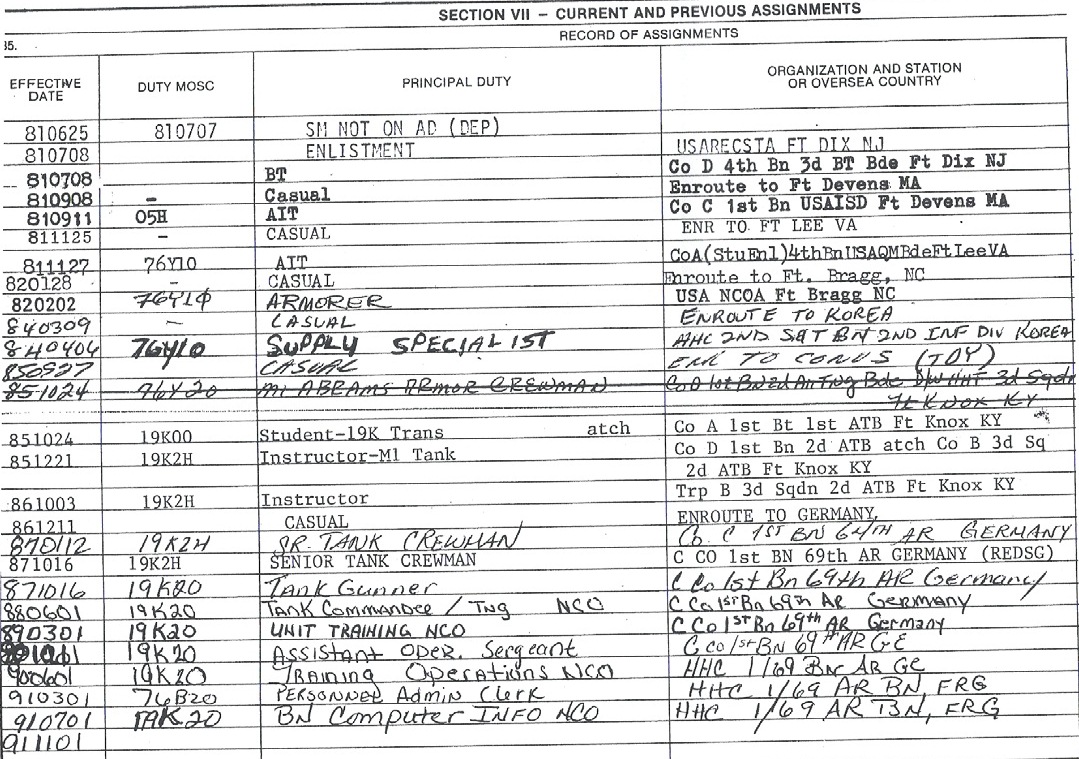 SECTION VII – CURRENT AND PREVIOUS ASSIGNMENTS
35. RECORD OF ASSIGNMENTS
EFFECTIVE DATE DUTY MOSC PRINCIPAL DUTY ORGANIZATION AND STATION OR OVERSEA COUNTRY
810625 810707 SM NOT ON AD (DEP)
810708 ENLISTMENT USARECSTA FT DIX NJ
810708 BT Co D 4th Bn 3d BT Bde Ft Dix NJ
810908 – Casual Enroute to Ft Devens MA
810911 05H AIT Co C 1st Bn USAISD Ft Devens MA
811125 – CASUAL ENR TO FT LEE VA
811127 76Y10 AIT CoA(StuEnl)4thBnUSAQMBdeFtLeeVA
820128 – CASUAL Enroute to Ft. Bragg, NC
820202 76Y1Ø ARMORER USA NCOA Ft Bragg NC
840309 – CASUAL ENROUTE TO KOREA
840404 76Y10 SUPPLY SPECIALIST HHC 2ND S&T BN 2ND INF DIV KOREA
850927 CASUAL ENR TO CONUS (TDY)
851024 76Y20 M1 ABRAMS ARMOR CREWMAN Co D 1st Bn 2d Ar Tng Bde 3d Sqdn
Ft KNOX KY
851024 19K00 Student-19K Trans atch Co A 1st Bt 1st ATB Ft Knox KY
851221 19K2H Instructor-M1 Tank Co D 1st Bn 2d ATB atch Co B 3d Sq
2d ATB Ft Knox KY
861003 19K2H Instructor Trp B 3d Sqdn 2d ATB Ft Knox KY
861211 CASUAL ENROUTE TO GERMANY,
870112 19K2H SR. TANK CREWMAN Co. C 1ST BN 64TH AR GERMANY
871016 19K2H SENIOR TANK CREWMAN C CO 1st BN 69th AR GERMANY (REDSG)
871016 19K20 Tank Gunner C Co 1st Bn 69th AR Germany
880601 19K20 Tank Commander / Tng NCO C Co 1st Bn 69th AR Germany
890301 19K20 UNIT TRAINING NCO C Co 1ST Bn 69th AR Germany
19K20 Assistant Oper. Sergeant C Co 1st Bn 69th AR GE
900601 19K20 Training Operations NCO HHC 1/69 Bn AR GE
910301 76B20 PERSONNEL Admin Clerk HHC 1/69 AR BN, FRG
910701 19K20 BN Computer INFO NCO HHC 1/69 AR BN, FRG
911101